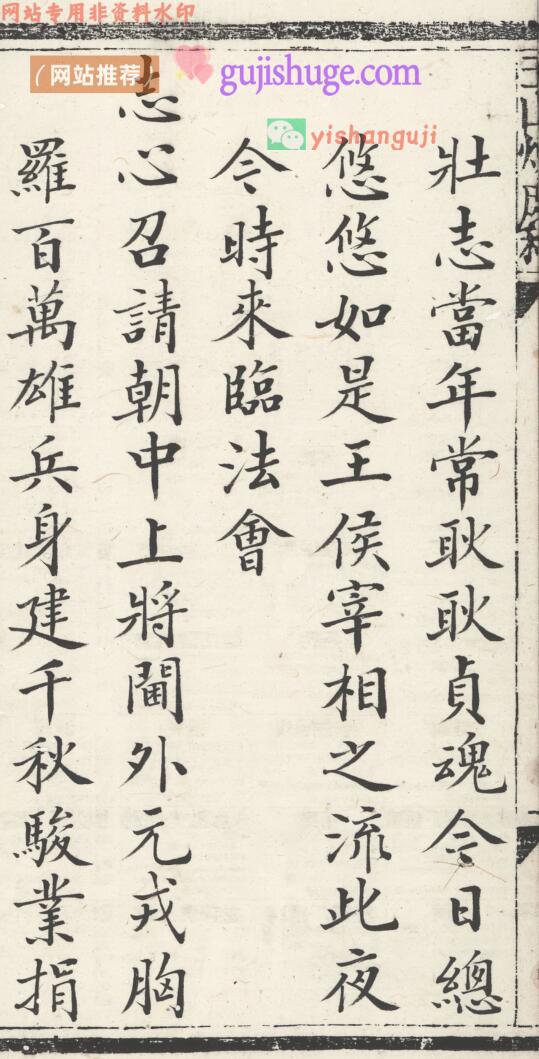 网站专用非资料水印
（网站推荐）
gujishuge.com
yishanguji
壯志當年常耿耿貞魂今日總
悠悠如是王侯宰相之流此夜
今時來臨法會
志心召請朝中上將閫外元戎胸
羅百萬雄兵身建千秋駿業捐